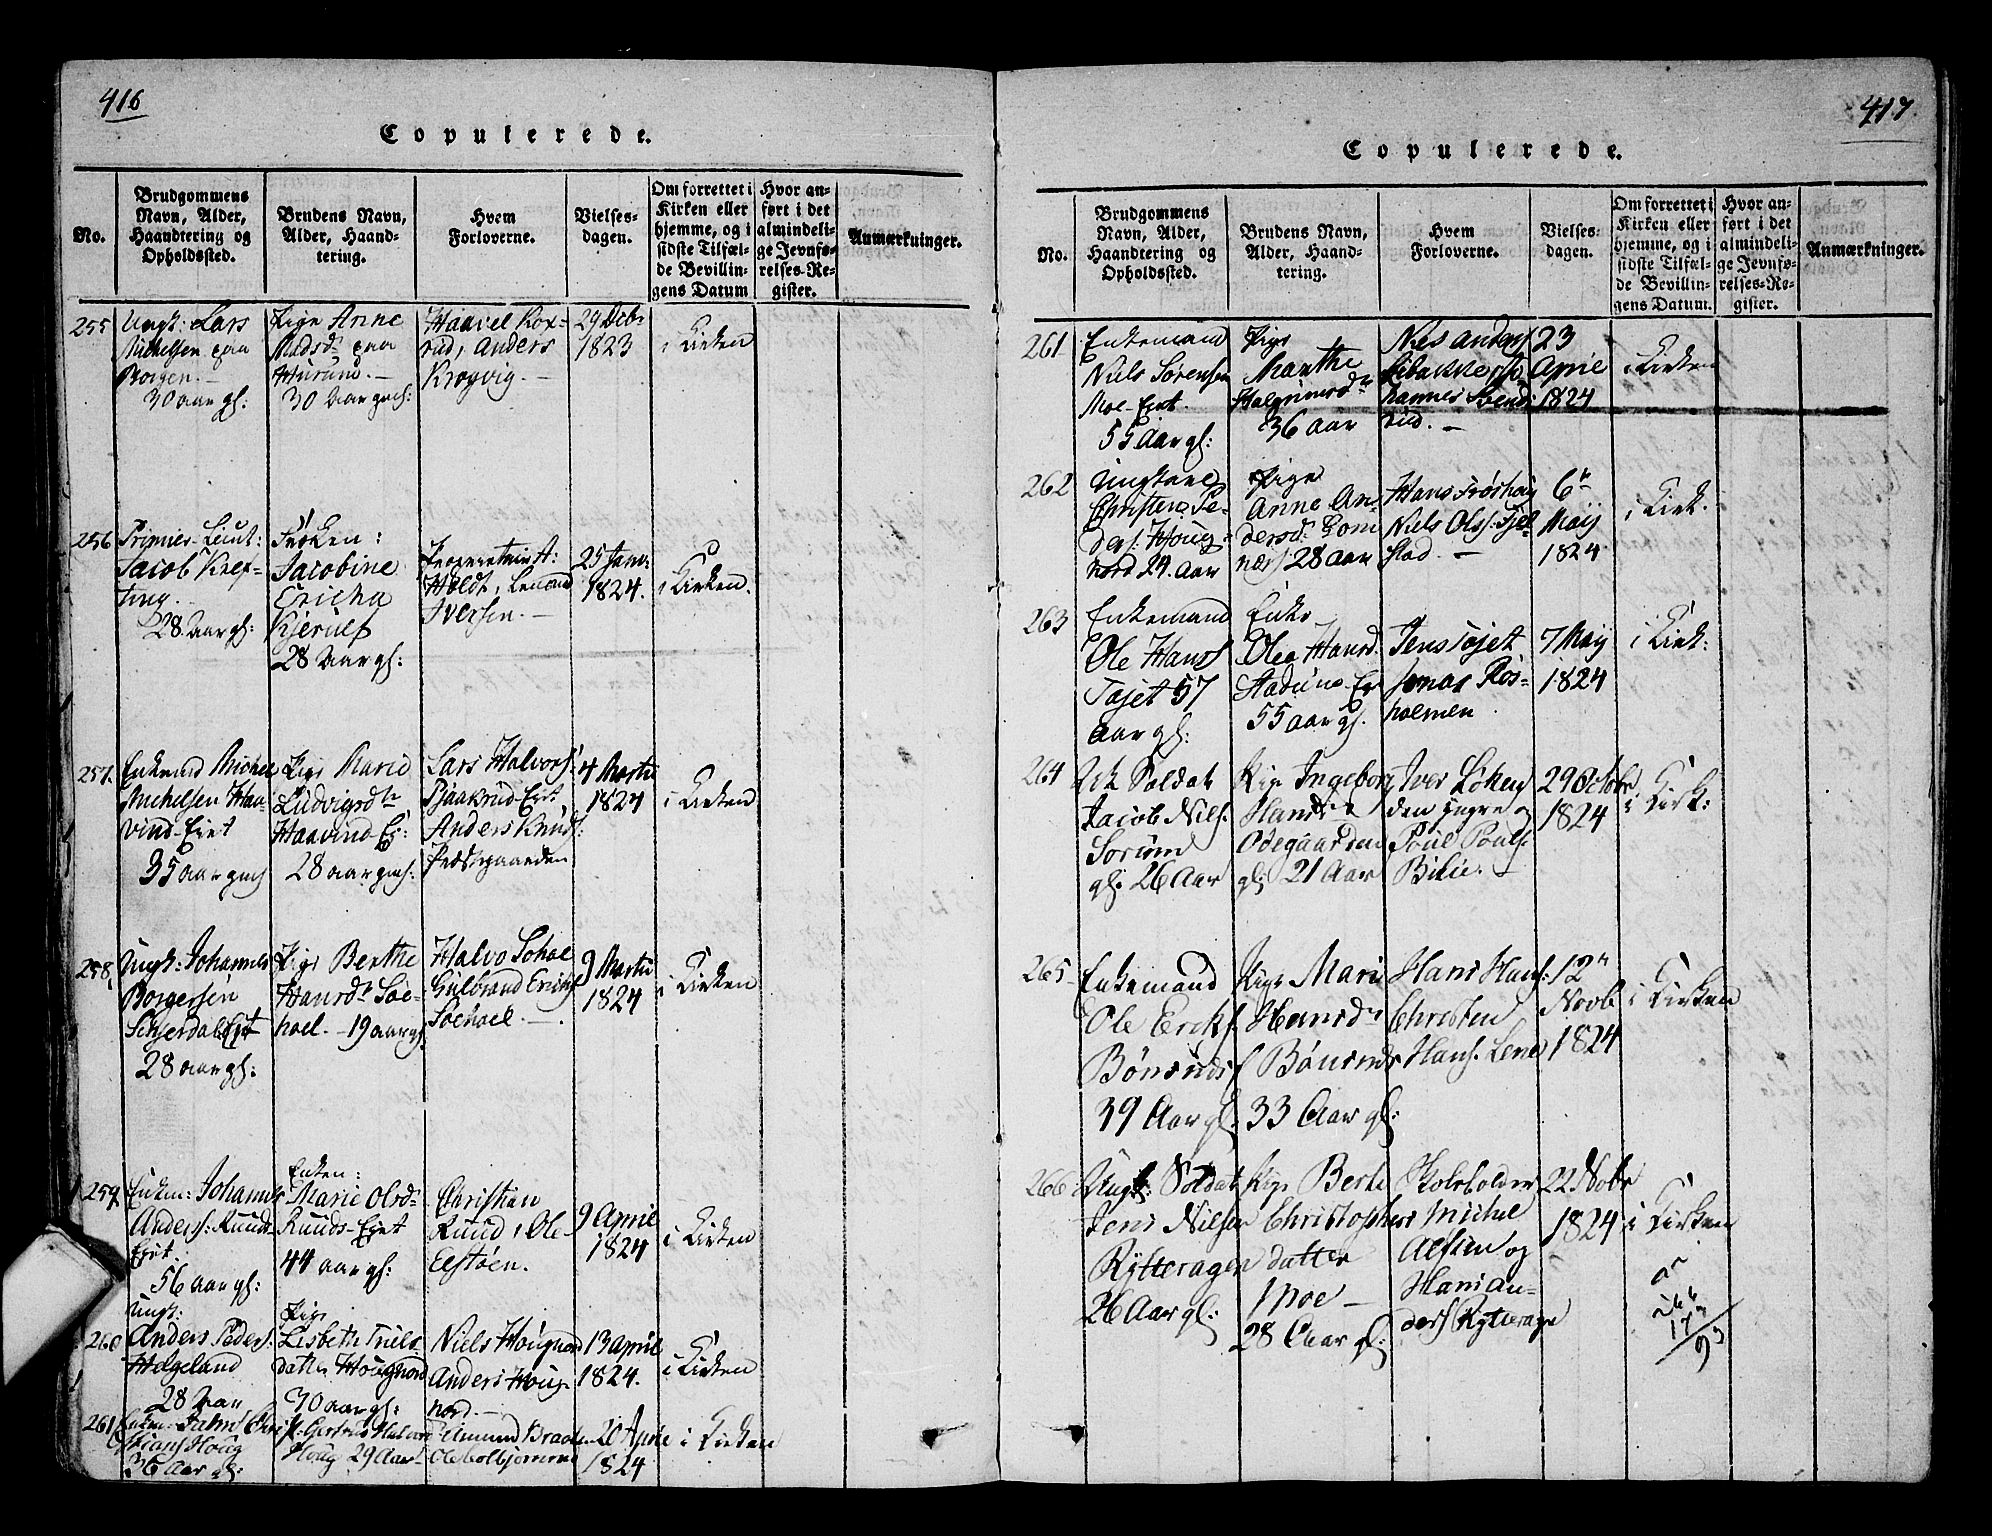 416
Copulerede.
No.
Brudgommens Navn, Alder, Haandtering og Opholdssted.
Brudens Navn, Alder, Haandtering.
Hvem Forloverne.
Vielsesdagen.
Om forrettet i Kirken eller hjemme, og i sidste Tilfælde Bevillingens Datum
Hvor anført i det almindelige Jevnførelses-Register.
Anmærkninger.
255
Ungk: Lars
Michelsen paa
Borgen. —
30 aar gl:
Pige Anne
Madsd. paa
30 Aar gml:
Haavel Kox-
rud, Anders
Krogvig. —
29 Decbr
1823
i Kirken
256
Primier-Lieut:
Jacob Kref-
ting.
28 Aar gl:
Frøken:
Jacobine
Ericha
Kjerulf
28 Aar gl:
Proprietair A:
Holdt,
Iversen. —
25 Janv:
1824.
i Kirken.
257.
Enkemd Michel
Michelsen Haa-
vind-Eiet
35 aar gml
Pige Marie
Ludvigsdtr
Haavind-Ej:
28 aar gml:
Lars Halvors:
Eiet
Anders Knuds:
Præstegaarden
4 Martii
1824
i Kirken
258
Ungk: Johannes
Borgersen
Eiet
28 aar gl:
Pige Berthe
Hansdr Soe-
hoel. — 19 aar gl.
Halvo Sohoe
Gulbrand Erichs
Soehoel. —
9 Martii
1824
i Kirken
259
Enkem: Johannes
Anders: Ruud
Eiet.
56 aar gl:
Enken:
Marie Olsd.
Ruuds-Eiet
44 aar gl:
Christian
Ruud, Ole
Elstøen.
9 April
1824
i Kirken
260
Ungk:
Anders Peders:
Helgeland
28 Aar
Pige
Lisbeth Truls
datter Hougnord
30 aar gl:
Niels Hougnord
Anders Houg-
nord. —
13 april
1824.
i Kirken
261
Enkem:
Houg
36 Aar gl:
Houg 29 Aar
Amund
20 Aprie
1824
i Kirken
417.
Copulerede.
No.
Brudgommens Navn, Alder, Haandtering og Opholdssted.
Brudens Navn, Alder, Haandtering.
Hvem Forloverne.
Vielsesdagen.
Om forrettet i Kirken eller hjemme, og i sidste Tilfælde Bevillingens Datum.
Hvor anført i det almindelige Jevnførelses-Register.
Anmærkninger.
261
Enkemand
Niels Sørensen
Moe-Eiet.
55 Aar gl:
Pige
Marthe
36 aar
rud. —
23
Aprie
1824
i Kirken
262
Ungkarl
Christen Pe-
ders: Houg-
nord 24. Aar
Pige
Anne An-
dersd. Gom
28 aar
Hans Frøshaug
Niels Olss. Fjel
stad. —
6te
Maij
1824
i Kirk.
263
Enkemand
Ole Hans
Tajet 57
aar gl:
Enke
Olea Hansd.
55 aar gl.
Jens Tøjet
Jonas Røs-
holmen
7 Maij
1824
i Kirk:
264
Soldat
Jacob Niels.
Sorum
gl: 26 Aar
Pige Ingeborg
Hansdr
Ødegaarden
gl: 21 Aar
Iver Løken
den yngre og
Poul Pouls:
Bilie. —
29 Octobr
1824
i Kirk:
265
Enkemand
Ole Ericks.
Bønsnds
39 Aar gl:
Pige Mari
Hansdr
Bønsnds
33 Aar gl:
Hans Hans:
Christen
Hans. Lene
12te
Novb
1824
i Kirken
266
Ungk: Soldat
Jens Nilsen
Rytteragen
26 Aar gl:
Pige Berte
Christophers
datter
Moe —
28 Aar gl:
Skoleholder
Michel
Alfsen og
Hans An-
ders Rytterage
22 Nobr
1824
i Kirken
266
173
93